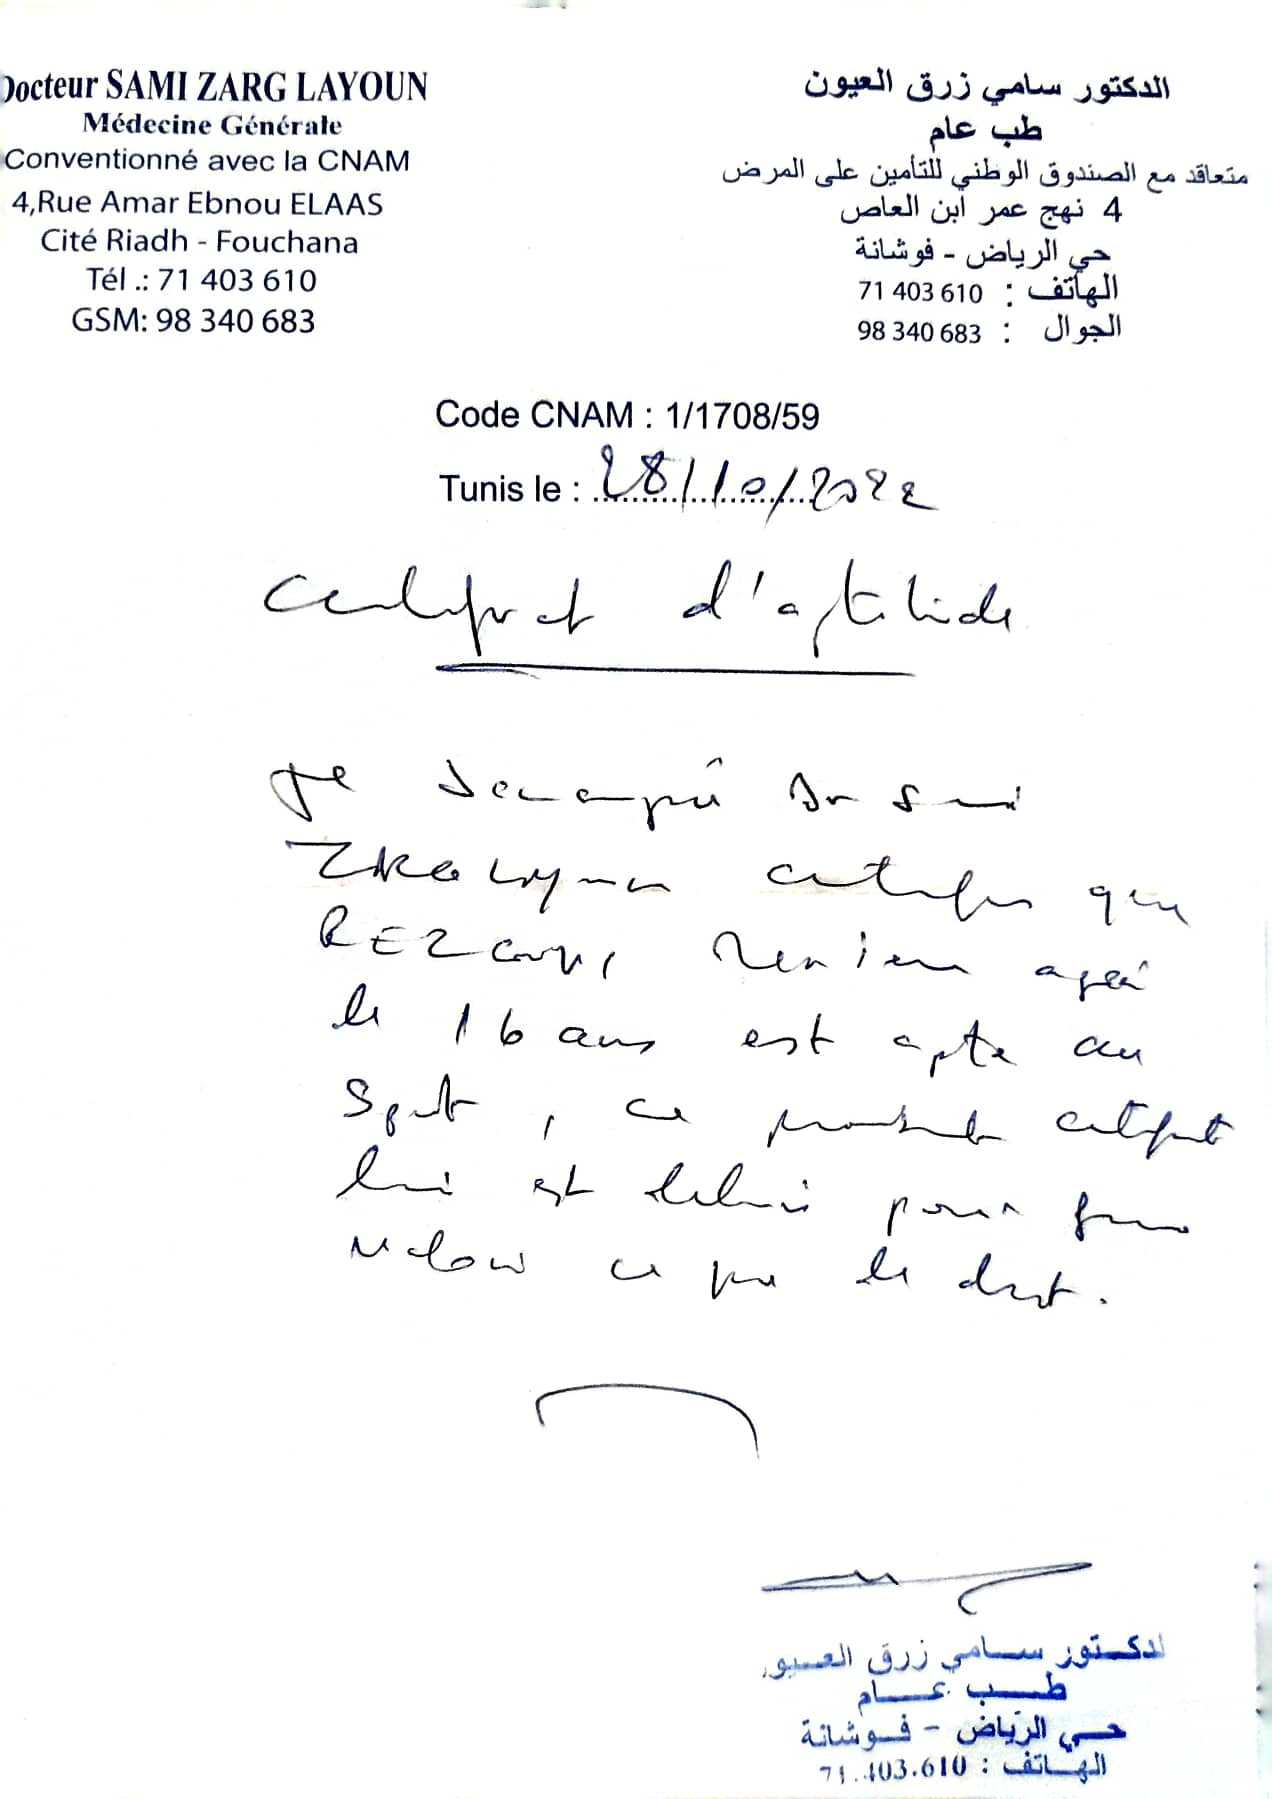 Docteur SAMI ZARG LAYOUN
Médecine Générale
Conventionné avec la CNAM
4,Rue Amar Ebnou ELAAS
Cité Riadh - Fouchana
Tél .: 71 403 610
GSM: 98 340 683
الدكتور سامي زرق العيون
طب عام
متعاقد مع الصندوق الوطني للتأمين على المرض
4 نهج عمر ابن العاص
حي الرياض - فوشانة
الهاتف : 71 403 610
الجوال : 98 340 683
Code CNAM : 1/1708/59
Tunis le : 28/10/2022
Certificat d'aptitude
Je soussigné Dr Sami
ZRG Layoun certifie que
REZGUI agé
de 16 ans est apte au
Sport, ce présent certificat
lui est délivré pour faire
valoir ce que de droit.
لدكتور سامي زرق العيو
طب عام
حي الرياض - فوشانة
الهاتف : 71.403.610